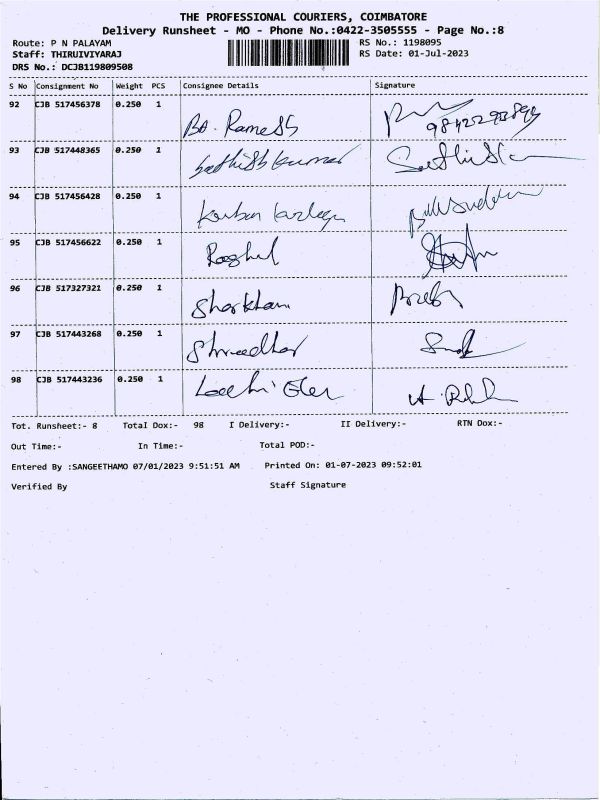 THE PROFESSIONAL COURIERS, COIMBATORE
Delivery Runsheet - MO - Phone No.:0422-3505555 - Page No.:8
Route: P N PALAYAM
RS No.: 1198095
Staff: THIRUIVIYARAJ
RS Date: 01-Jul-2023
DRS No.: DCJB119809508
S No Consignment No Weight PCS Consignee Details Signature
92 CJB 517456378 0.250 1
Ramesh
93 CJB 517448365 0.250 1
Sathish kumar
94 CJB 517456428 0.250 1
95 CJB 517456622 0.250 1
96 CJB 517327321 0.250 1
97 CJB 517443268 0.250 1
Shreedhar
98 CJB 517443236 0.250 1
Tot. Runsheet:- 8 Total Dox:- 98 I Delivery:- II Delivery:- RTN Dox:-
Out Time:- In Time:- Total POD:-
Entered By :SANGEETHAMO 07/01/2023 9:51:51 AM Printed On: 01-07-2023 09:52:01
Verified By Staff Signature